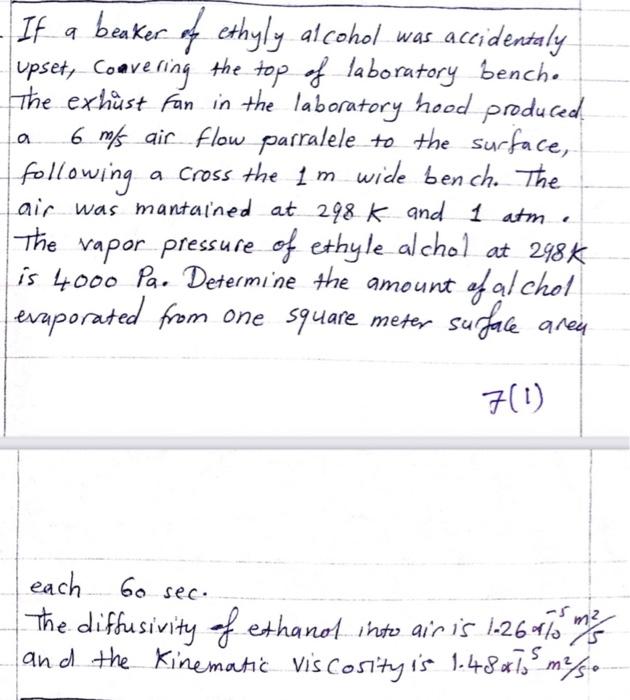 If a beaker of ethyly alcohol was accidentaly
upset, Coavering the top of laboratory bench.
The exhust fan in the laboratory hood produced
a 6 m/s air flow parralele to the surface,
following a cross the 1 m wide bench. The
air was mantained at 298 K and 1 atm.
The vapor pressure of ethyle alchol at 298K
is 4000 Pa. Determine the amount of alchol
evaporated from one square meter surface area
7(1)
each 60 sec.
The diffusivity of ethanol into air is 1.26 x 10⁻⁵ m²/s
and the Kinematic Viscosity is 1.48 x 10⁻⁵ m²/s.